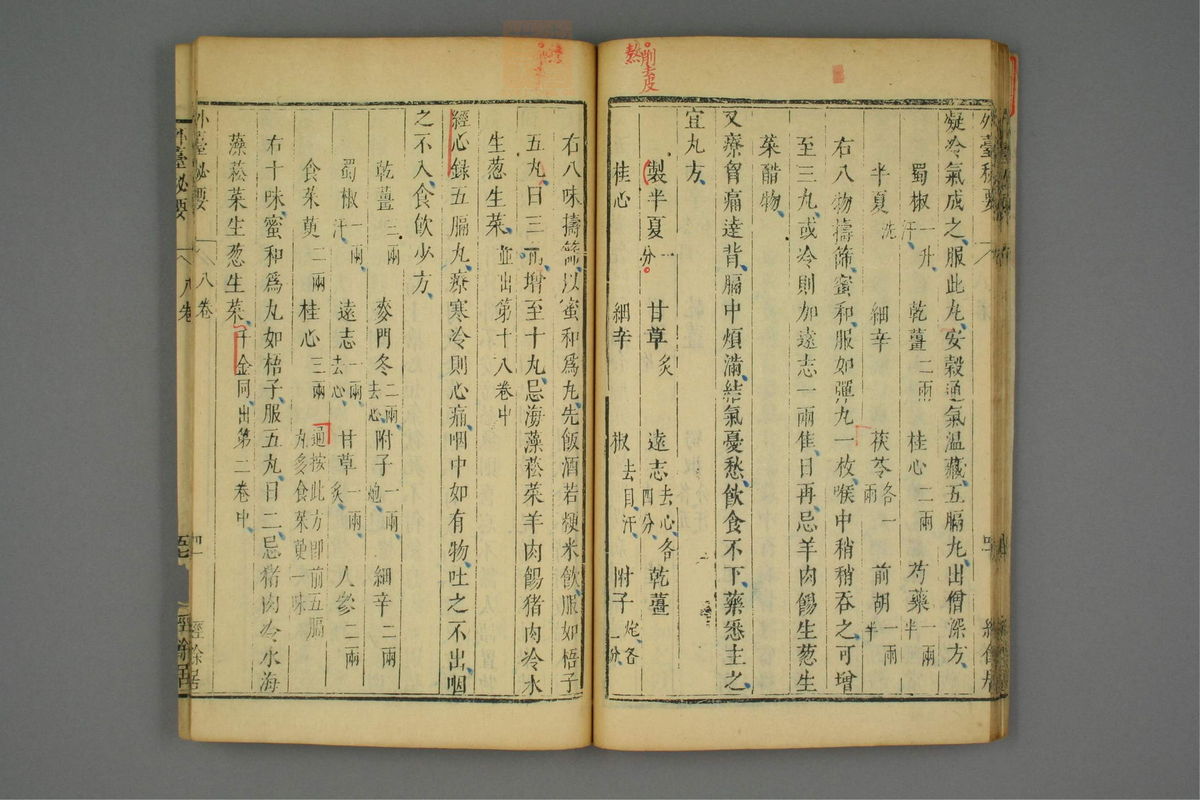 削去皮
熬
外臺秘要
凝冷氣成之服此丸安穀通氣温藏五膈丸出僧深方
蜀椒一升汗 乾薑二兩 桂心二兩 芍藥一兩半
半夏洗 細辛 茯苓各一兩 前胡一兩半
右八物擣篩蜜和服如彈丸一枚喉中稍稍吞之可增
至三丸或冷則加遠志一兩佳日再忌羊肉餳生葱生
菜醋物
又療胷痛達背膈中煩滿結氣憂愁飲食不下藥悉主之
宜丸方
製半夏一分 甘草炙 遠志去心各四分 乾薑
桂心 細辛 椒去目汗 附子炮各一分
右八味擣篩以蜜和爲丸先飯酒若粳米飲服如梧子
五丸日三增至十丸忌海藻菘菜羊肉餳猪肉冷水
生葱生菜並出第十八卷中
經心録五膈丸療寒冷則心痛咽中如有物吐之不出咽
之不入食飲少方
乾薑三兩 麥門冬二兩去心 附子一兩炮 細辛二兩
蜀椒一兩汗 遠志一兩去心 甘草一兩炙 人參二兩
食茱萸二兩 桂心三兩 廸按此方即前五膈丸多食茱萸一味
右十味蜜和爲丸如梧子服五丸日二忌猪肉冷水海
藻菘菜生葱生菜千金同出第二卷中
外臺秘要 八卷 四一 經餘居
外臺秘要 八卷 經餘居